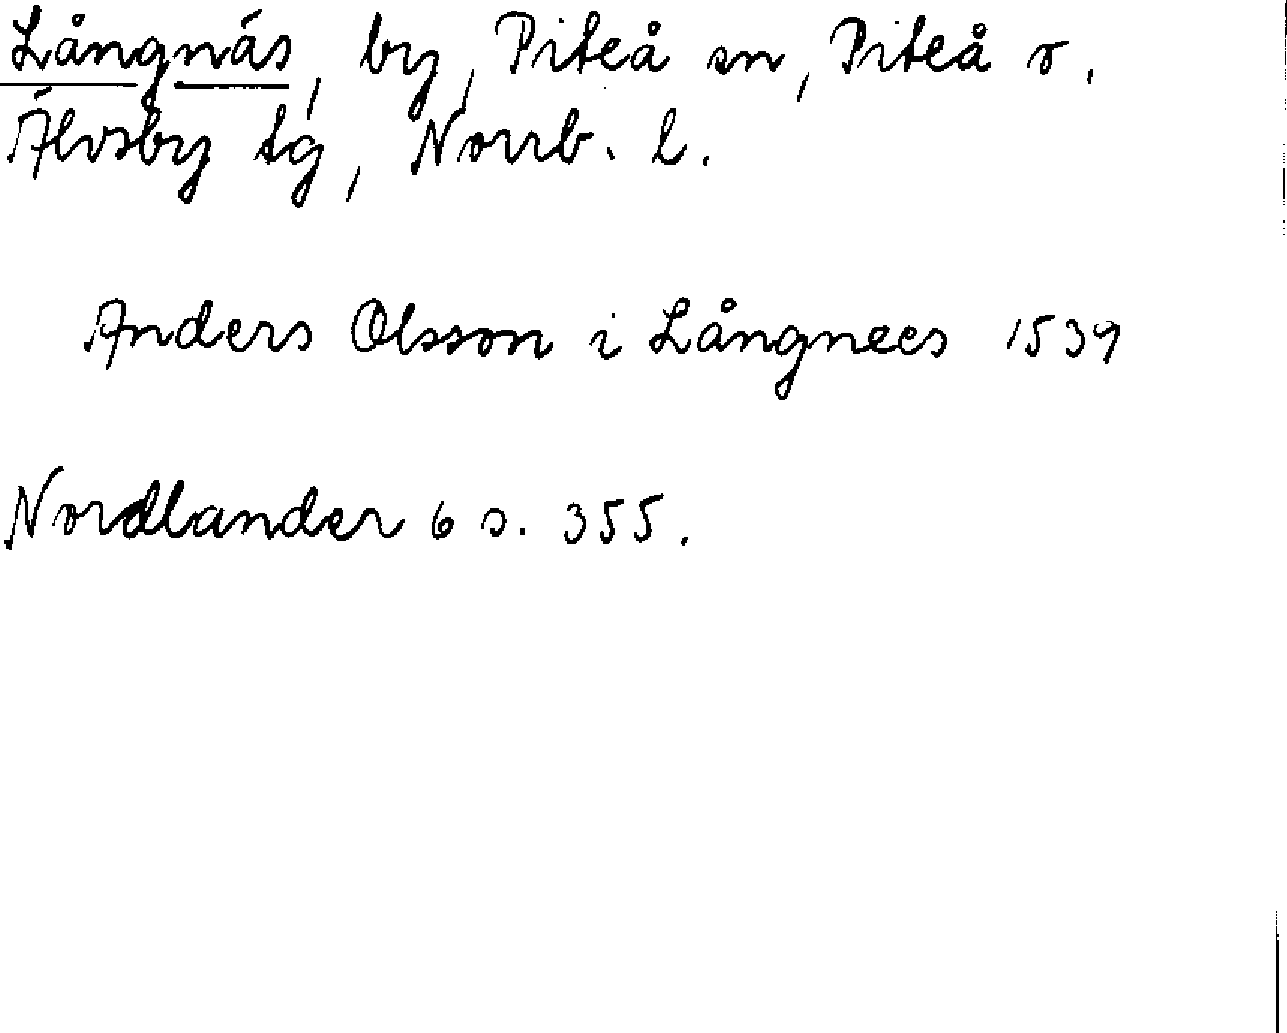 Långnäs, by, Piteå sn, Piteå o.
Älvsby tg, Norrb. l.
Anders Olsson i Långnees 1539
Nordlander 6 s. 355.